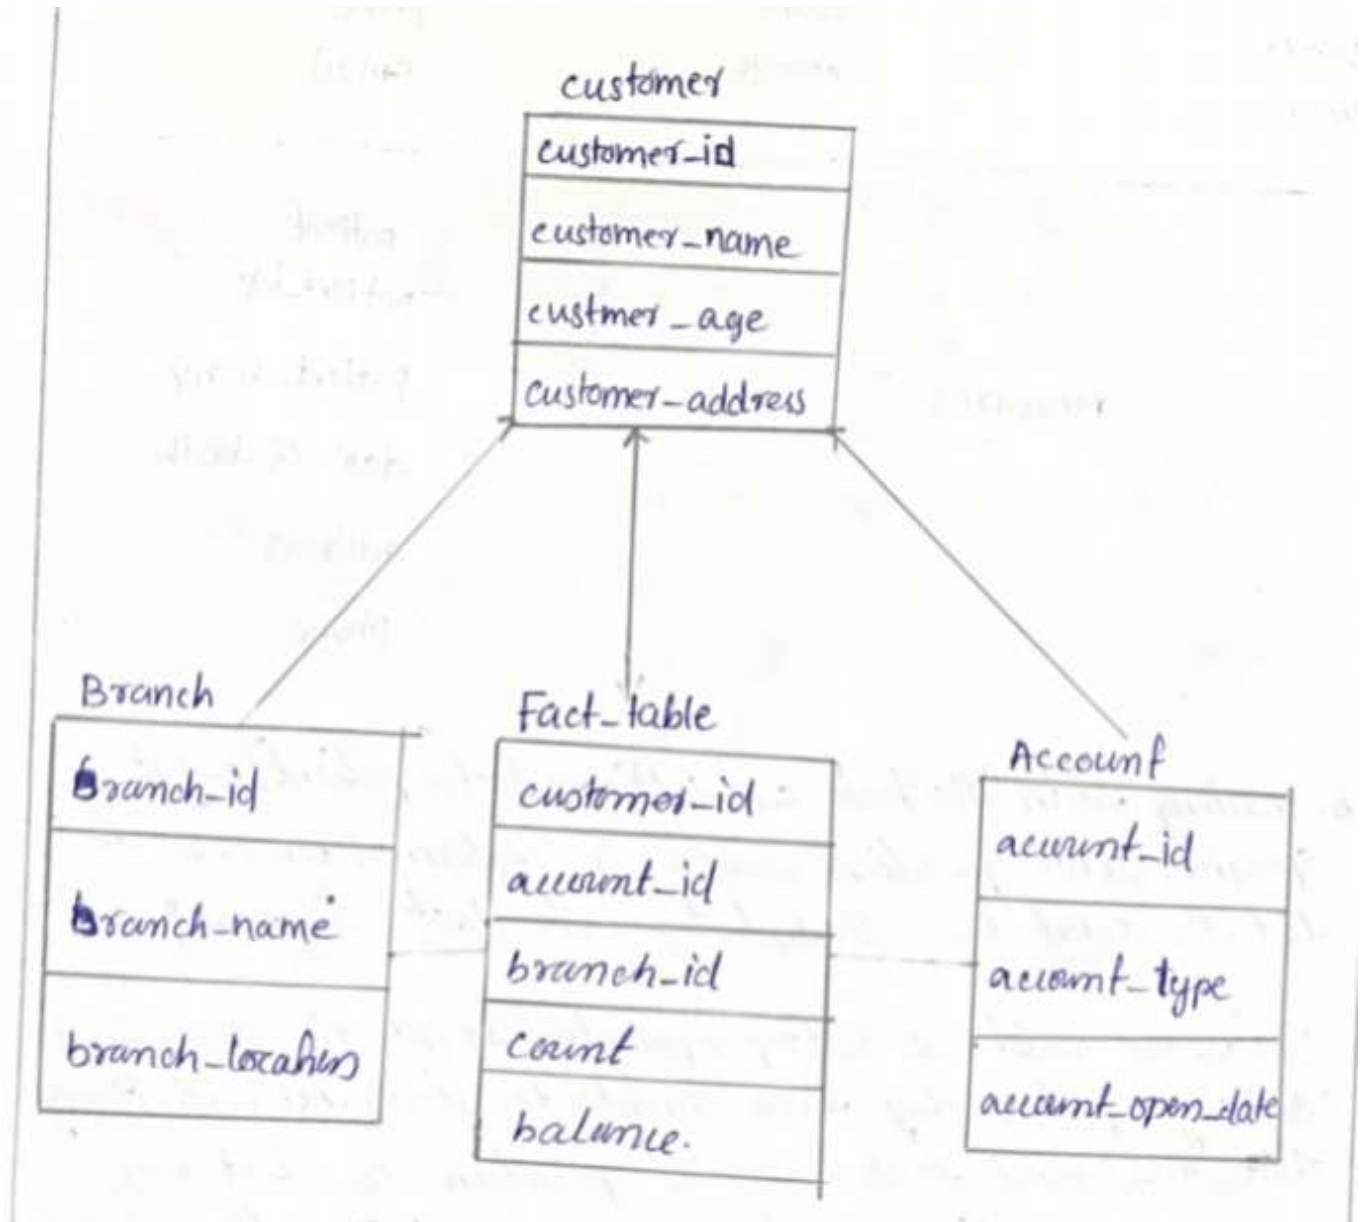 customer
customer_id
customer_name
custmer_age
customer_address
Branch
Branch_id
branch_name
branch_locahins
Fact_table
customer_id
account_id
branch_id
count
balance.
Account
account_id
account_type
account_open_date